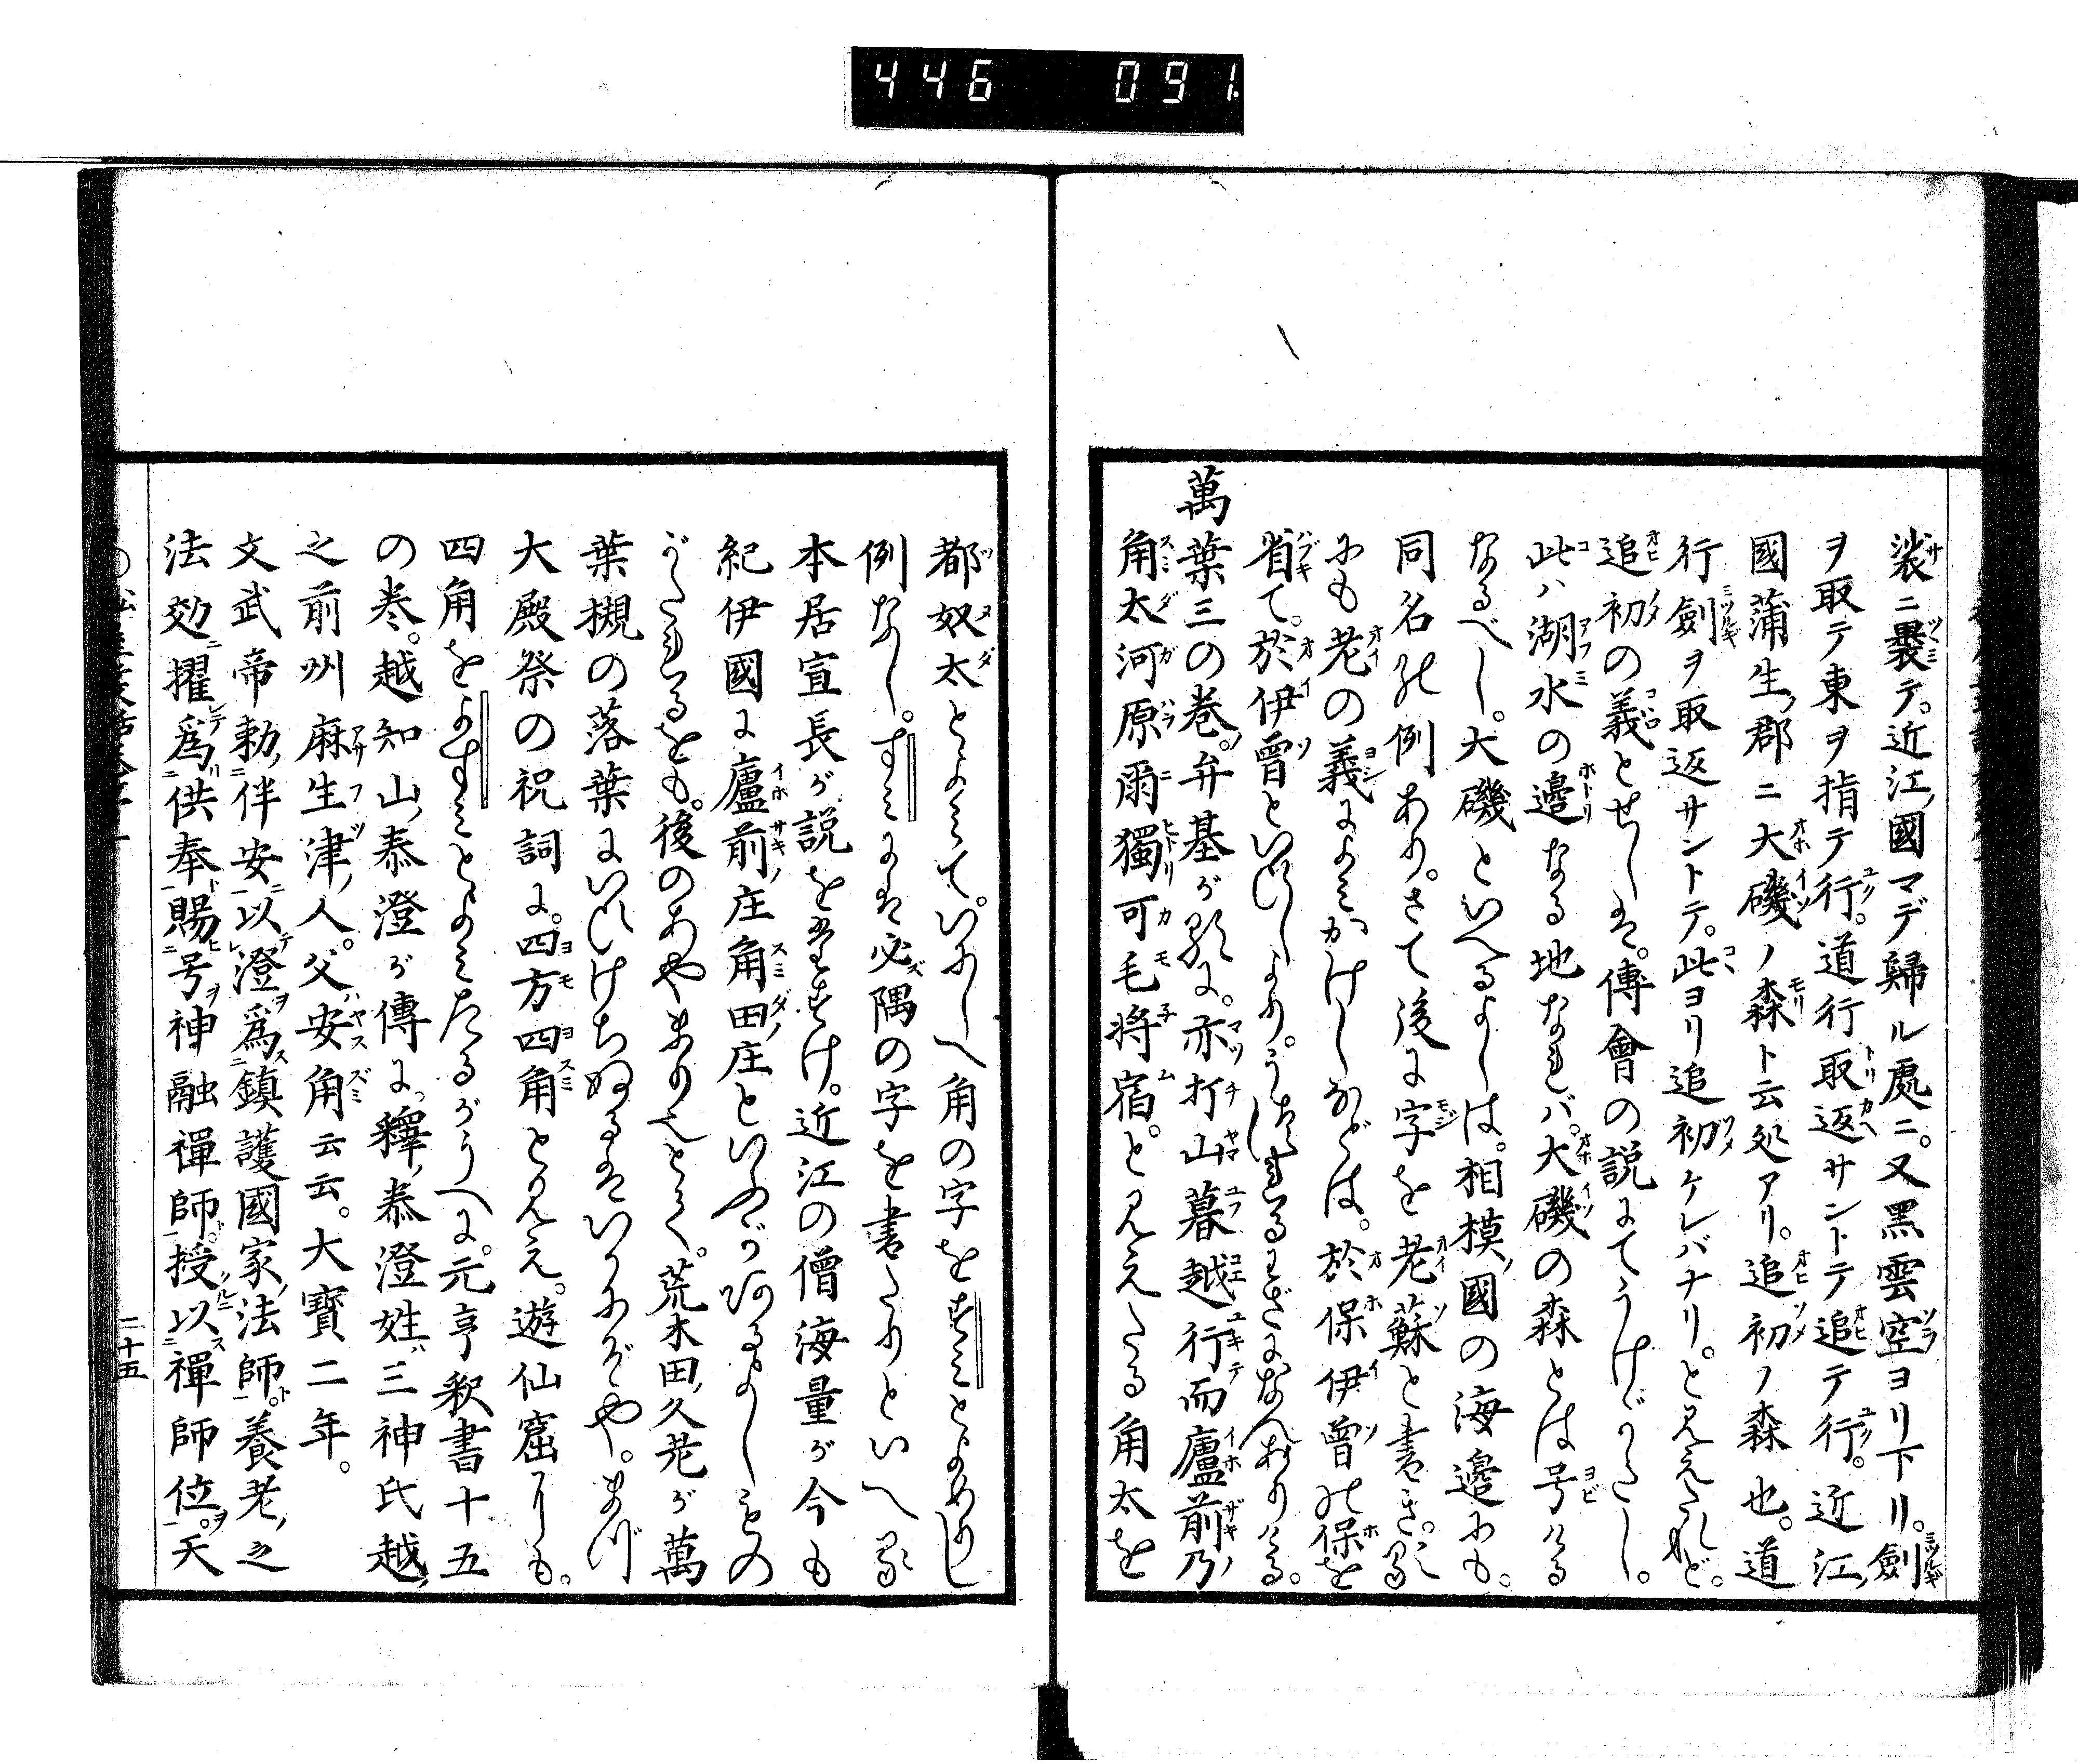 446 091.
裟ニ褁テ。近江國マデ歸ル處ニ。又黑雲空ヨリ下リ。劍
ヲ取テ東ヲ指テ行。道行取返サントテ追テ行。近江
國蒲生郡ニ大磯ノ森ト云処アリ。追初ノ森也。道
行劍ヲ取返サントテ。此ヨリ追初ケレバナリ。と見えたれど。
追初の義とせしは。傳會の説にてうけがたし。
此ハ湖水の邊なる地なれバ。大磯の森とは号ける
なるべし。大磯といへるよしは。相模國の海邊にも。
同名の例あり。さて後に字を老蘇と書き。
にも老の義によみかけしなどは。於保伊曾の保を
省て。於伊曾といひしより。うたれるわざになんありける。
萬葉三の巻。弁基が歌に。亦打山暮越行而廬前乃
角太河原爾獨可毛將宿。と見えたる角太を
都奴太とよみて。いにしへ角の字をすみとよめりし
例なし。すみには必隅の字を書たりといへる
本居宣長が説をたすけ。近江の僧海量が今も
紀伊國に廬前庄角田庄といふが河るよしもの
がたれるをも。後のあやまりえとく。荒木田久老が萬
葉槻の落葉にいひけちぬるはいかにぞや。まづ
大殿祭の祝詞に。四方四角と見え。遊仙窟にも。
四角をよすみとよみたるがうへに。元亨釈書十五
の巻。越知山泰澄が傳に。釋泰澄姓三神氏越
之前州麻生津人。父安角云云。大寶二年。
文武帝勅伴安以澄爲鎮護國家法師。養老之
法効擢爲供奉賜号神融禪師。授以禪師位。天
二十五